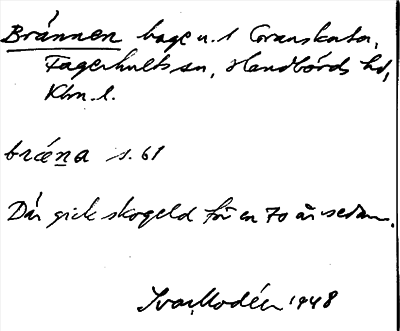 Brännen hage u. 1 Granskata,
Fagerhults sn, Handbörds hd,
Klm. l.
bräna s. 61
Där gick skogeld för en 70 år sedan.
Ivar Modéer 1948